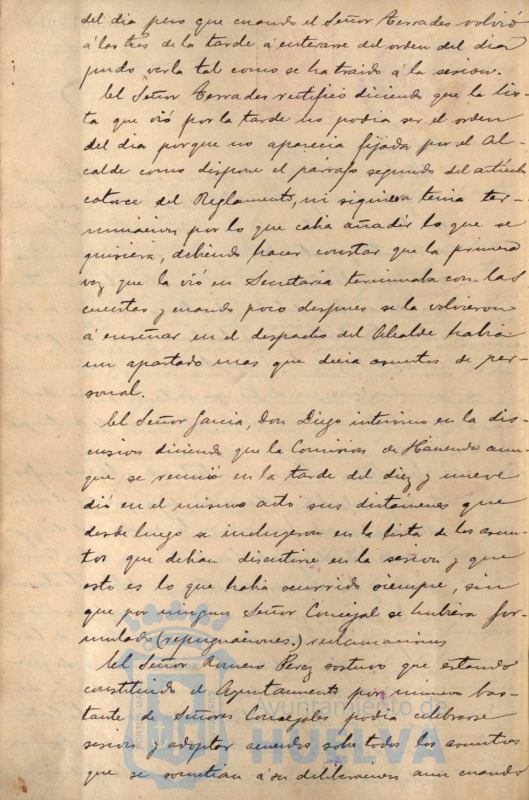 del dia pero que cuando el Señor Terrades volvió
á las tres de la tarde á enterarse del orden del dia
pudo verla tal como se ha traido á la sesion.
El Señor Terrades rectificó diciendo que la lis-
ta que vió por la tarde no podia ser el orden
del dia porque no aparecia fijada por el Al-
calde como dispone el párrafo segundo del artículo
catorce del Reglamento, ni siquiera tenia ter-
minacion por lo que cabia añadir lo que se
quisiera, debiendo hacer constar que la primera
vez que la vió en Secretaría terminaba con las
cuentas y cuando poco despues se la volvieron
á enseñar en el despacho del Alcalde habia
un apartado mas que decia asuntos de per-
sonal.
El Señor Garcia, Don Diego intervino en la dis-
cusion diciendo que la Comision de Hacienda aun-
que se reunió en la tarde del diez y nueve
dió en el mismo acto sus dictámenes que
desde luego se incluyeron en la lista de los asun-
tos que debian discutirse en la sesion y que
esto es lo que habia ocurrido siempre, sin
que por ningun Señor Concejal se hubiera for-
mulado (repugnaciones) reclamaciones
El Señor Romero Perez sostuvo que estando
constituido el Ayuntamiento por número bas-
tante de Señores Concejales podia celebrarse
sesion y adoptar acuerdos sobre todos los asuntos
que se sometian á su deliberacion aun cuando
Ayuntamiento de
HUELVA